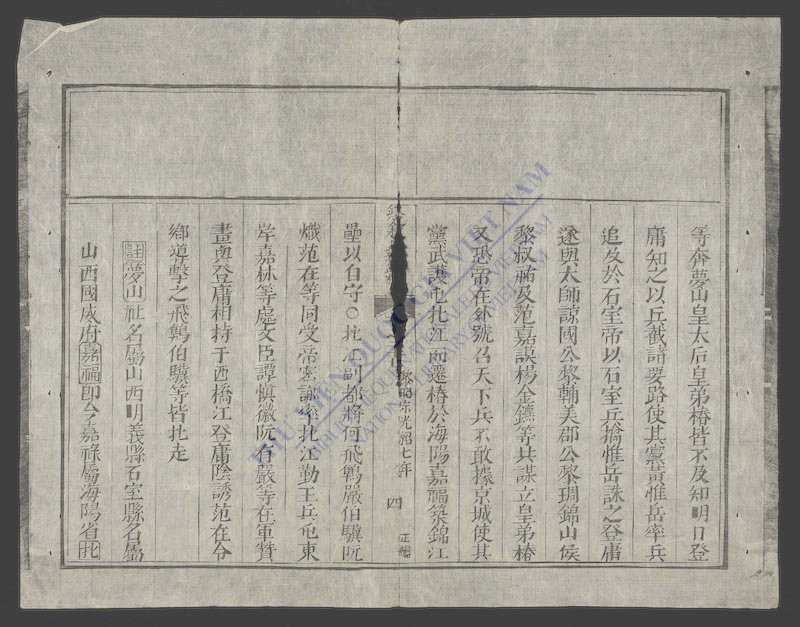 等奔夢山皇太后皇弟椿皆不及知明日登
庸知之以兵截諸要路使其黨黃惟岳率兵
追及於石室帝以石室兵擒惟岳誅之登庸
遂與太師諒國公黎輔美郡公黎琱錦山侯
黎叔祐及范嘉謨楊金鑣等共謀立皇弟椿
又恐帝在外號召天下兵不敢據京城使其
黨武護屯北江而遷椿於海陽嘉福築錦江
黎昭宗光紹七年 四 正編
壘以自守○北本副都將何飛鵷嚴伯驥阮
熾范在等同受帝密詔率北江勤王兵屯東
岸嘉林等處文臣譚愼徽阮有嚴等在軍贊
畫與登庸相持于西橋江登庸陰誘范在令
鄉導擊之飛鵷伯驥等皆北走
註夢山社名屬山西明義縣石室縣名屬
山西國威府嘉福即今嘉祿屬海陽省北
THƯ VIỆN QUỐC GIA VIỆT NAM
BIBLIOTHÈQUE NATIONALE DU VIETNAM
NATIONAL LIBRARY OF VIETNAM